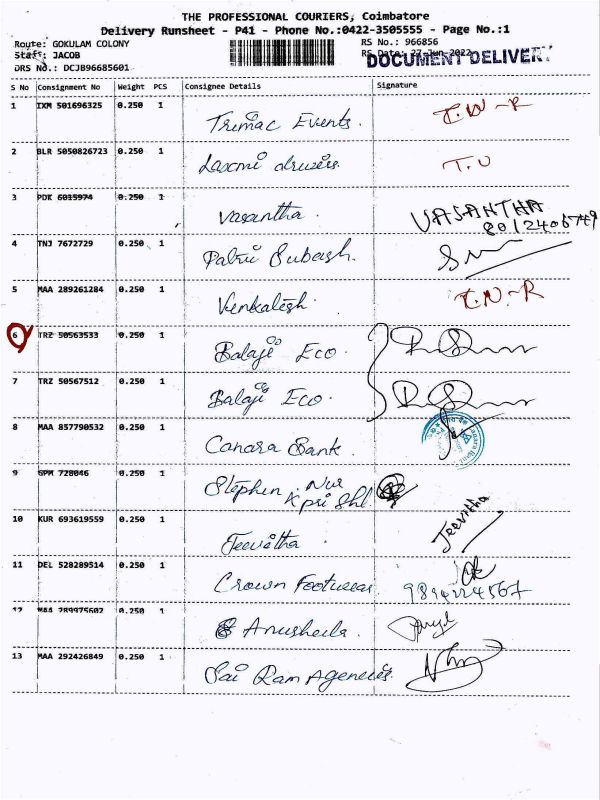 THE PROFESSIONAL COURIERS, Coimbatore
Delivery Runsheet - P41 - Phone No.:0422-3505555 - Page No.:1
Route: GOKULAM COLONY RS No.: 966856
Staff: JACOB RS Date: 27-Jun-2022 DOCUMENT DELIVERY
DRS No.: DCJB96685601
S No Consignment No Weight PCS Consignee Details Signature
1 IXM 501696325 0.250 1 Trimac Events. I.N-R
2 BLR 5050826723 0.250 1 Laxmi T.U
3 PDK 6015974 0.250 1 Vasantha. VASANTHA
8012406749
4 TNJ 7672729 0.250 1 Subash.
5 MAA 289261284 0.250 1 Venkatesh. I.N-R
6 TRZ 50563533 0.250 1 Balaji Eco.
7 TRZ 50567512 0.250 1 Balaji Eco.
8 MAA 857790532 0.250 1 Canara Bank.
9 GPM 728046 0.250 1 Stephen.
10 KUR 693619559 0.250 1 Jeevitha. Jeevitha
11 DEL 528289514 0.250 1 Crown Footwear
12 MAA 289975602 0.250 1 Anusheila.
13 MAA 292426849 0.250 1 Sai Ram Agencies.